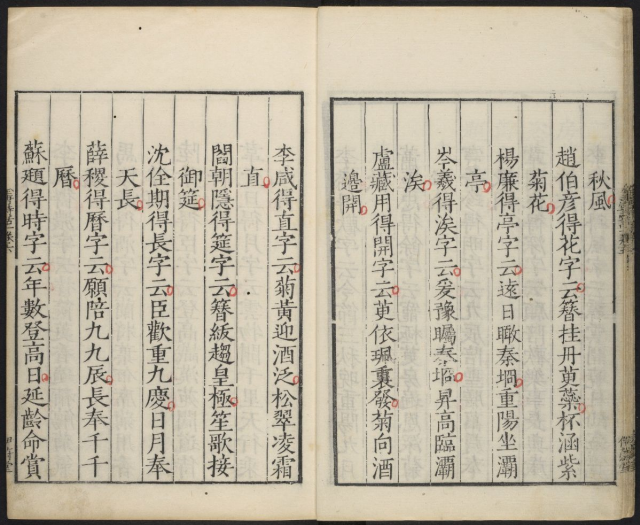 秋風
趙伯彥得花字云簪挂丹萸蘂杯涵紫
菊花
楊廉得亭字云遠日瞰秦坰重陽坐灞
亭
岑羲得涘字云爰豫矚秦坰昇高臨灞
涘
盧藏用得開字云萸依珮裏發菊向酒
邊開
李咸得直字云菊黃迎酒泛松翠凌霜
直
閻朝隱得筵字云簪紱趨皇極笙歌接
御筵
沈佺期得長字云臣歡重九慶日月奉
天長
薛稷得曆字云願陪九九辰長奉千千
曆
蘇頲得時字云年數登高日延齡命賞